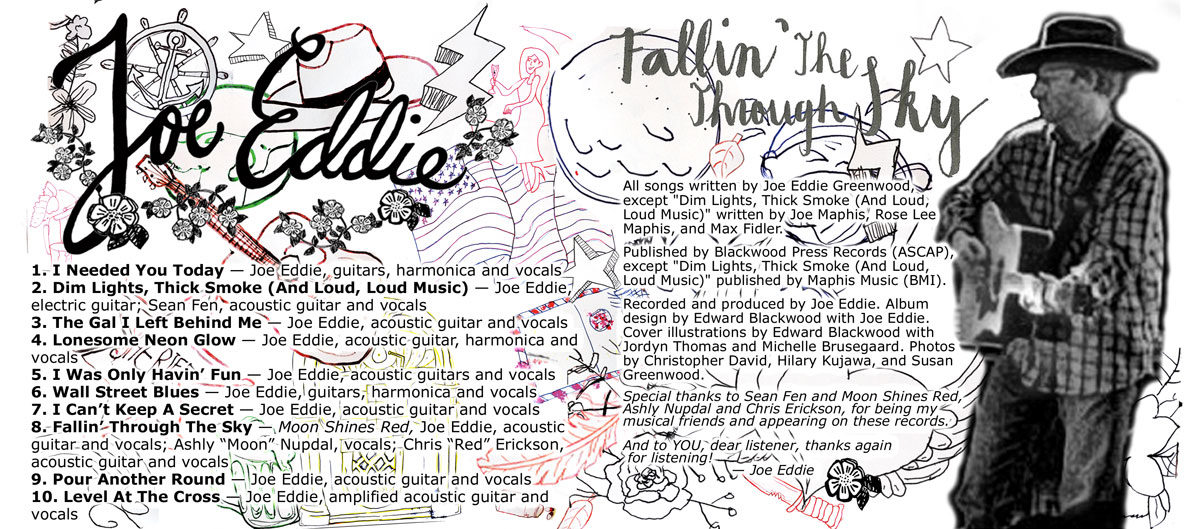 Joe Eddie
1. I Needed You Today — Joe Eddie, guitars, harmonica and vocals
2. Dim Lights, Thick Smoke (And Loud, Loud Music) — Joe Eddie,
electric guitar; Sean Fen, acoustic guitar and vocals
3. The Gal I Left Behind Me — Joe Eddie, acoustic guitar and vocals
4. Lonesome Neon Glow — Joe Eddie, acoustic guitar, harmonica and
vocals
5. I Was Only Havin’ Fun — Joe Eddie, acoustic guitars and vocals
6. Wall Street Blues — Joe Eddie, guitars, harmonica and vocals
7. I Can’t Keep A Secret — Joe Eddie, acoustic guitar and vocals
8. Fallin’ Through The Sky — Moon Shines Red, Joe Eddie, acoustic
guitar and vocals; Ashly “Moon” Nupdal, vocals; Chris “Red” Erickson,
acoustic guitar and vocals
9. Pour Another Round — Joe Eddie, acoustic guitar and vocals
10. Level At The Cross — Joe Eddie, amplified acoustic guitar and
vocals
Fallin' The
Through Sky
All songs written by Joe Eddie Greenwood,
except "Dim Lights, Thick Smoke (And Loud,
Loud Music)" written by Joe Maphis, Rose Lee
Maphis, and Max Fidler.
Published by Blackwood Press Records (ASCAP),
except "Dim Lights, Thick Smoke (And Loud,
Loud Music)" published by Maphis Music (BMI).
Recorded and produced by Joe Eddie. Album
design by Edward Blackwood with Joe Eddie.
Cover illustrations by Edward Blackwood with
Jordyn Thomas and Michelle Brusegaard. Photos
by Christopher David, Hilary Kujawa, and Susan
Greenwood.
Special thanks to Sean Fen and Moon Shines Red,
Ashly Nupdal and Chris Erickson, for being my
musical friends and appearing on these records.
And to YOU, dear listener, thanks again
for listening!
— Joe Eddie